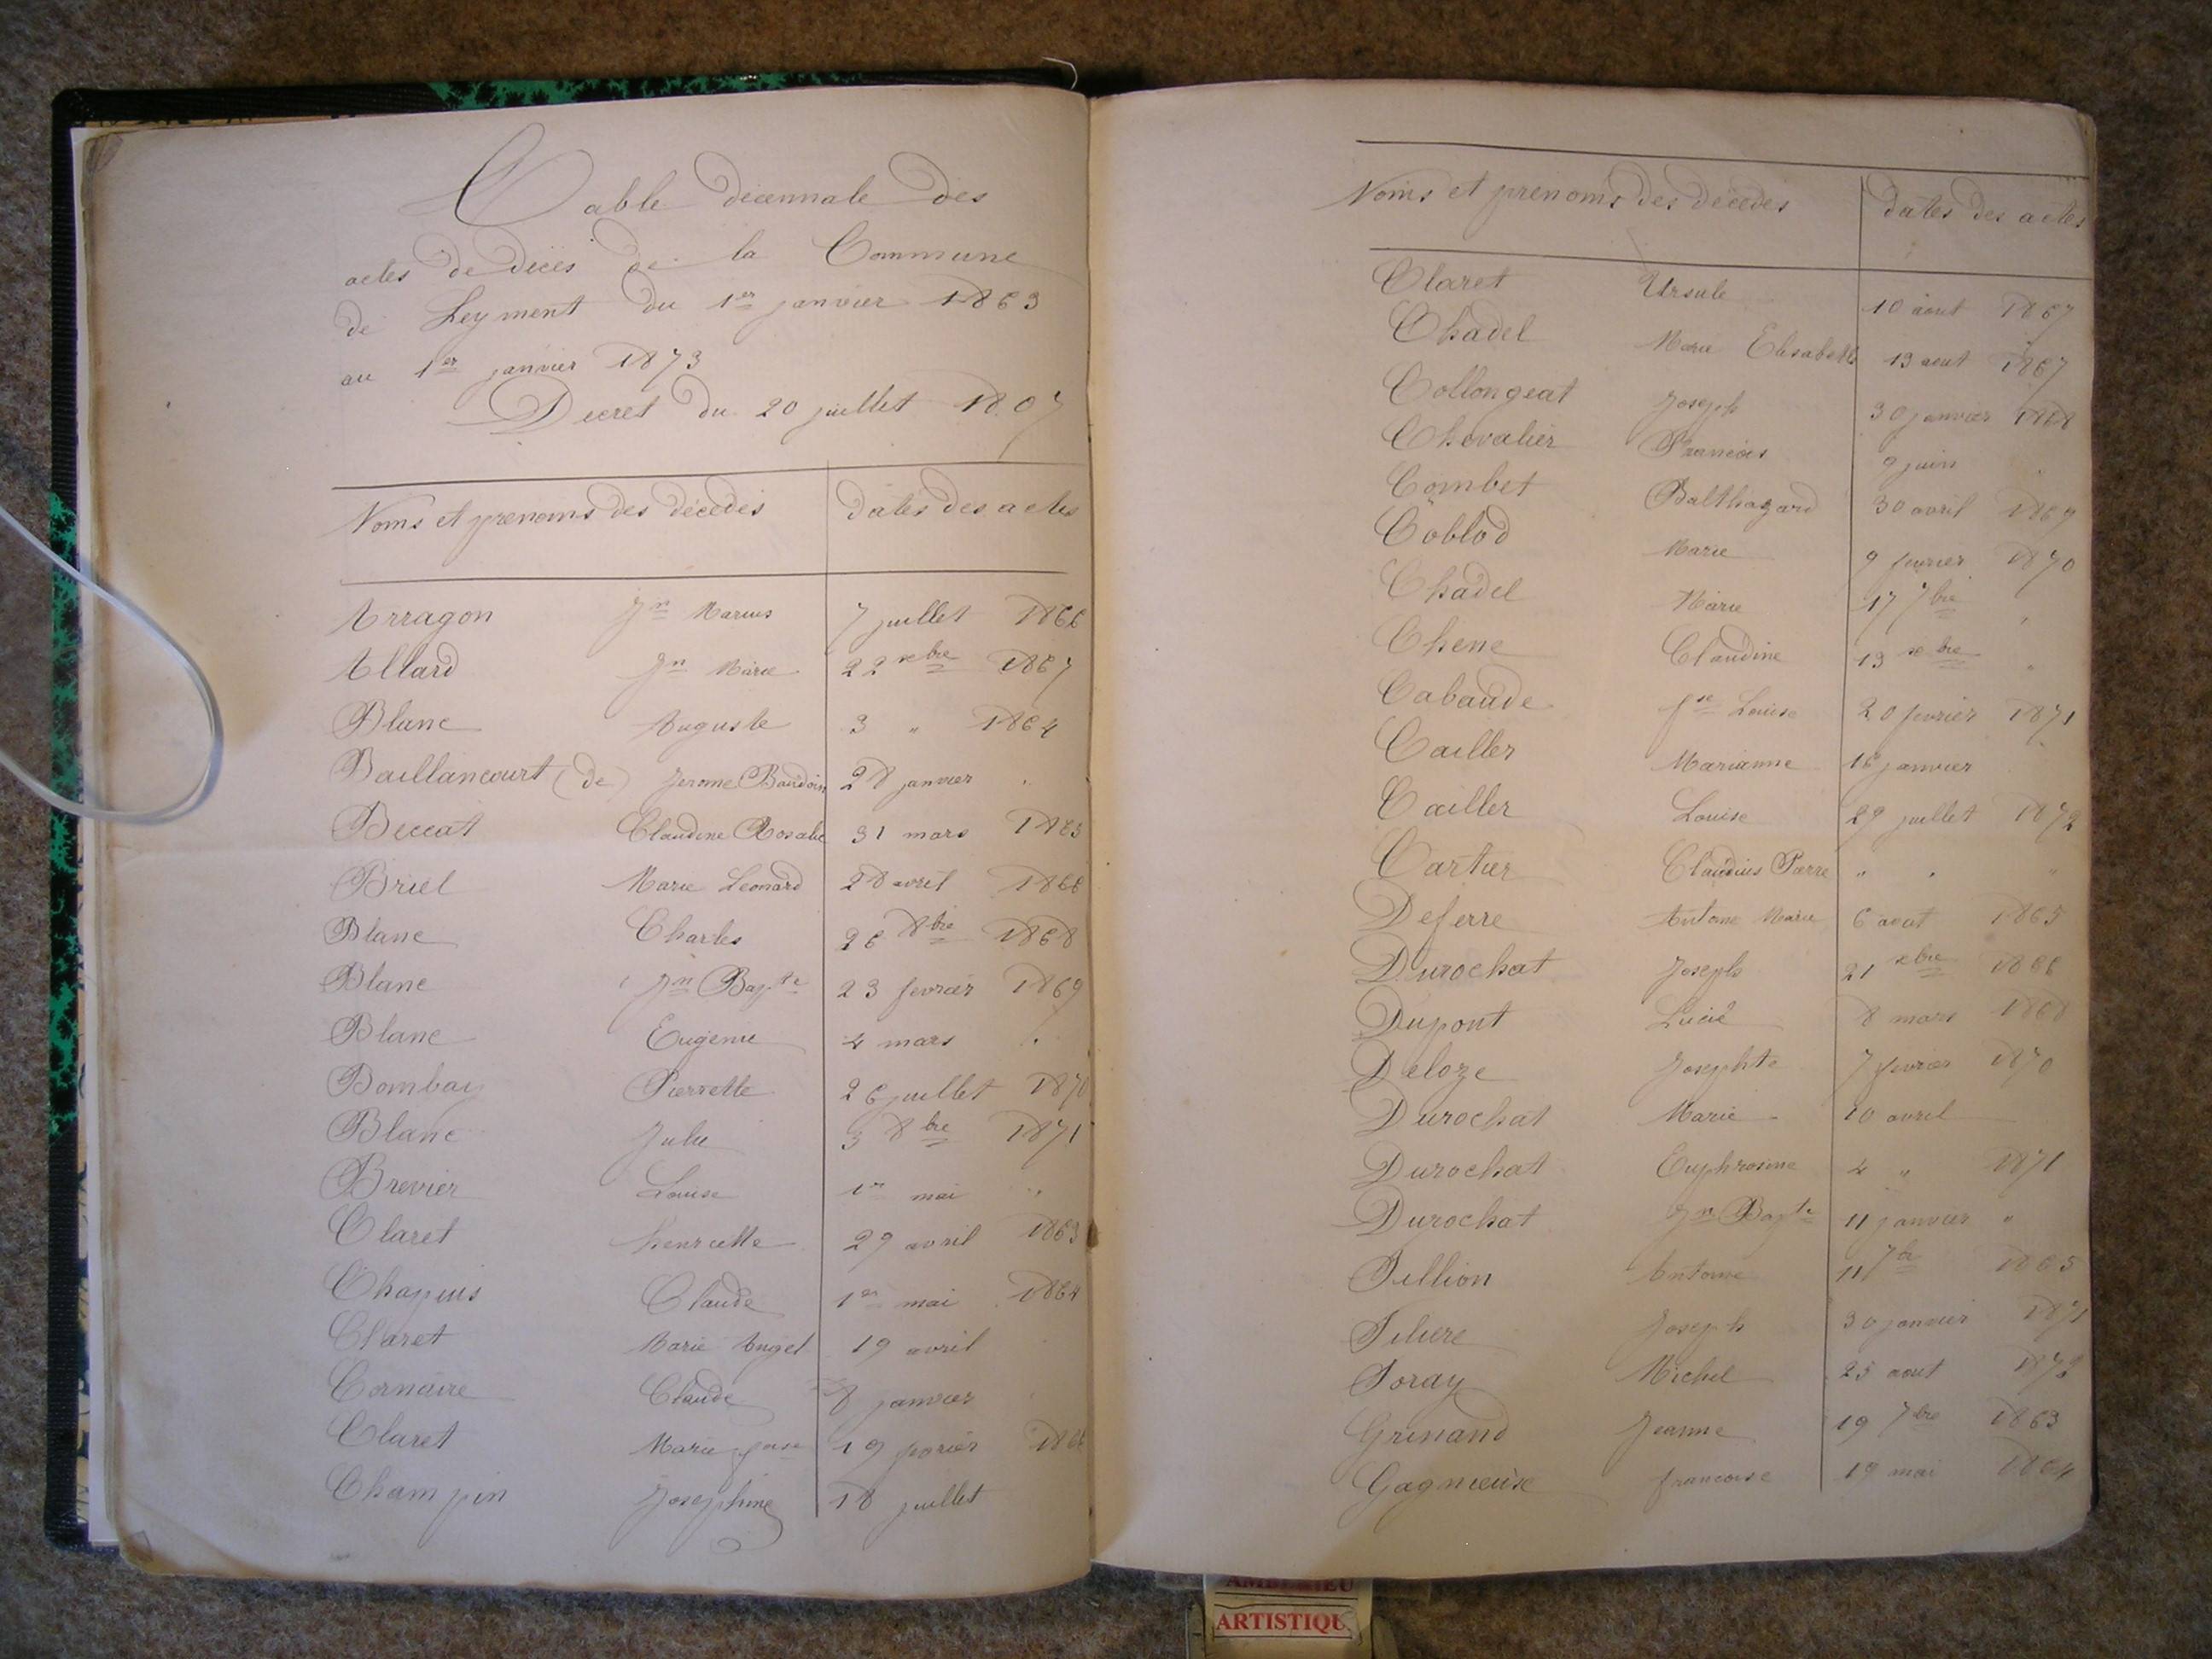 Table décennale des
actes de décès de la Commune
de Leyment du 1er janvier 1863
au 1er janvier 1873
Décret du 20 juillet 1807
Noms et prénoms des décédés dates des actes
Arragon Jn Marius 7 juillet 1866
Allard Jn Marie 22 xbre 1867
Blanc Auguste 3 " 1864
Baillancourt (de) Jerome Baudoin 28 janvier "
Beccat Claudine Rosalie 31 mars 1865
Briel Marie Leonard 28 avril 1866
Blanc Charles 26 8bre 1868
Blanc Jn Bapte 23 fevrier 1869
Blanc Eugenie 4 mars "
Bombay Pierrette 26 juillet 1870
Blanc Julie 3 8bre 1871
Brevier Louise 1er mai "
Claret henriette 29 avril 1863
Chapuis Claude 1er mai 1864
Claret Marie Angel 19 avril
Cornaire Claude 8 janvier
Claret Marie 19 fevrier
Champin Josephine 18 juillet
Noms et prénoms des décédés dates des actes
Claret Ursule 10 aout 1867
Chadel Marie Elisabeth 13 aout 1867
Collongeat Joseph 30 janvier 1868
Chevalier Francois 9 juin
Combet Balthazard 30 avril 1869
Coblod Marie 9 fevrier 1870
Chadel Marie 17 7bre "
Chene Claudine 13 xbre "
Cabaude fse Louise 20 fevrier 1871
Cailler Marianne 16 janvier
Cailler Louise 29 juillet 1872
Cartier Claudius Pierre " " "
Deferre Antoine Marie 6 aout 1865
Durochat Joseph 21 xbre 1866
Dupont Lucie 8 mars 1868
Deloze Josephte 7 fevrier 1870
Durochat Marie 10 avril
Durochat Euphrosine 4 " 1871
Durochat Jn Bapte 11 janvier "
Fillion Antoine 11 7bre 1865
Joseph 30 janvier 1871
Foray Michel 25 aout 1872
Grinand Jeanne 19 7bre 1863
Gagnieuse francoise 19 mai 1864
AMBERIEU
ARTISTIQU